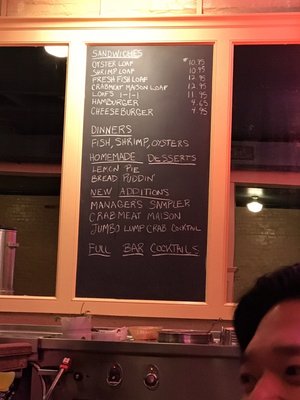 SANDWICHES
OYSTER LOAF $10.95
SHRIMP LOAF 10.95
FRESH FISH LOAF 12.95
CRABMEAT MAISON LOAF 12.95
LOAFS 1-1-1 11.95
HAMBURGER 4.65
CHEESEBURGER 4.95
DINNERS
FISH, SHRIMP, OYSTERS
HOMEMADE DESSERTS
LEMON PIE
BREAD PUDDIN'
NEW ADDITIONS
MANAGERS SAMPLER
CRABMEAT MAISON
JUMBO LUMP CRAB COCKTAIL
FULL BAR COCKTAILS